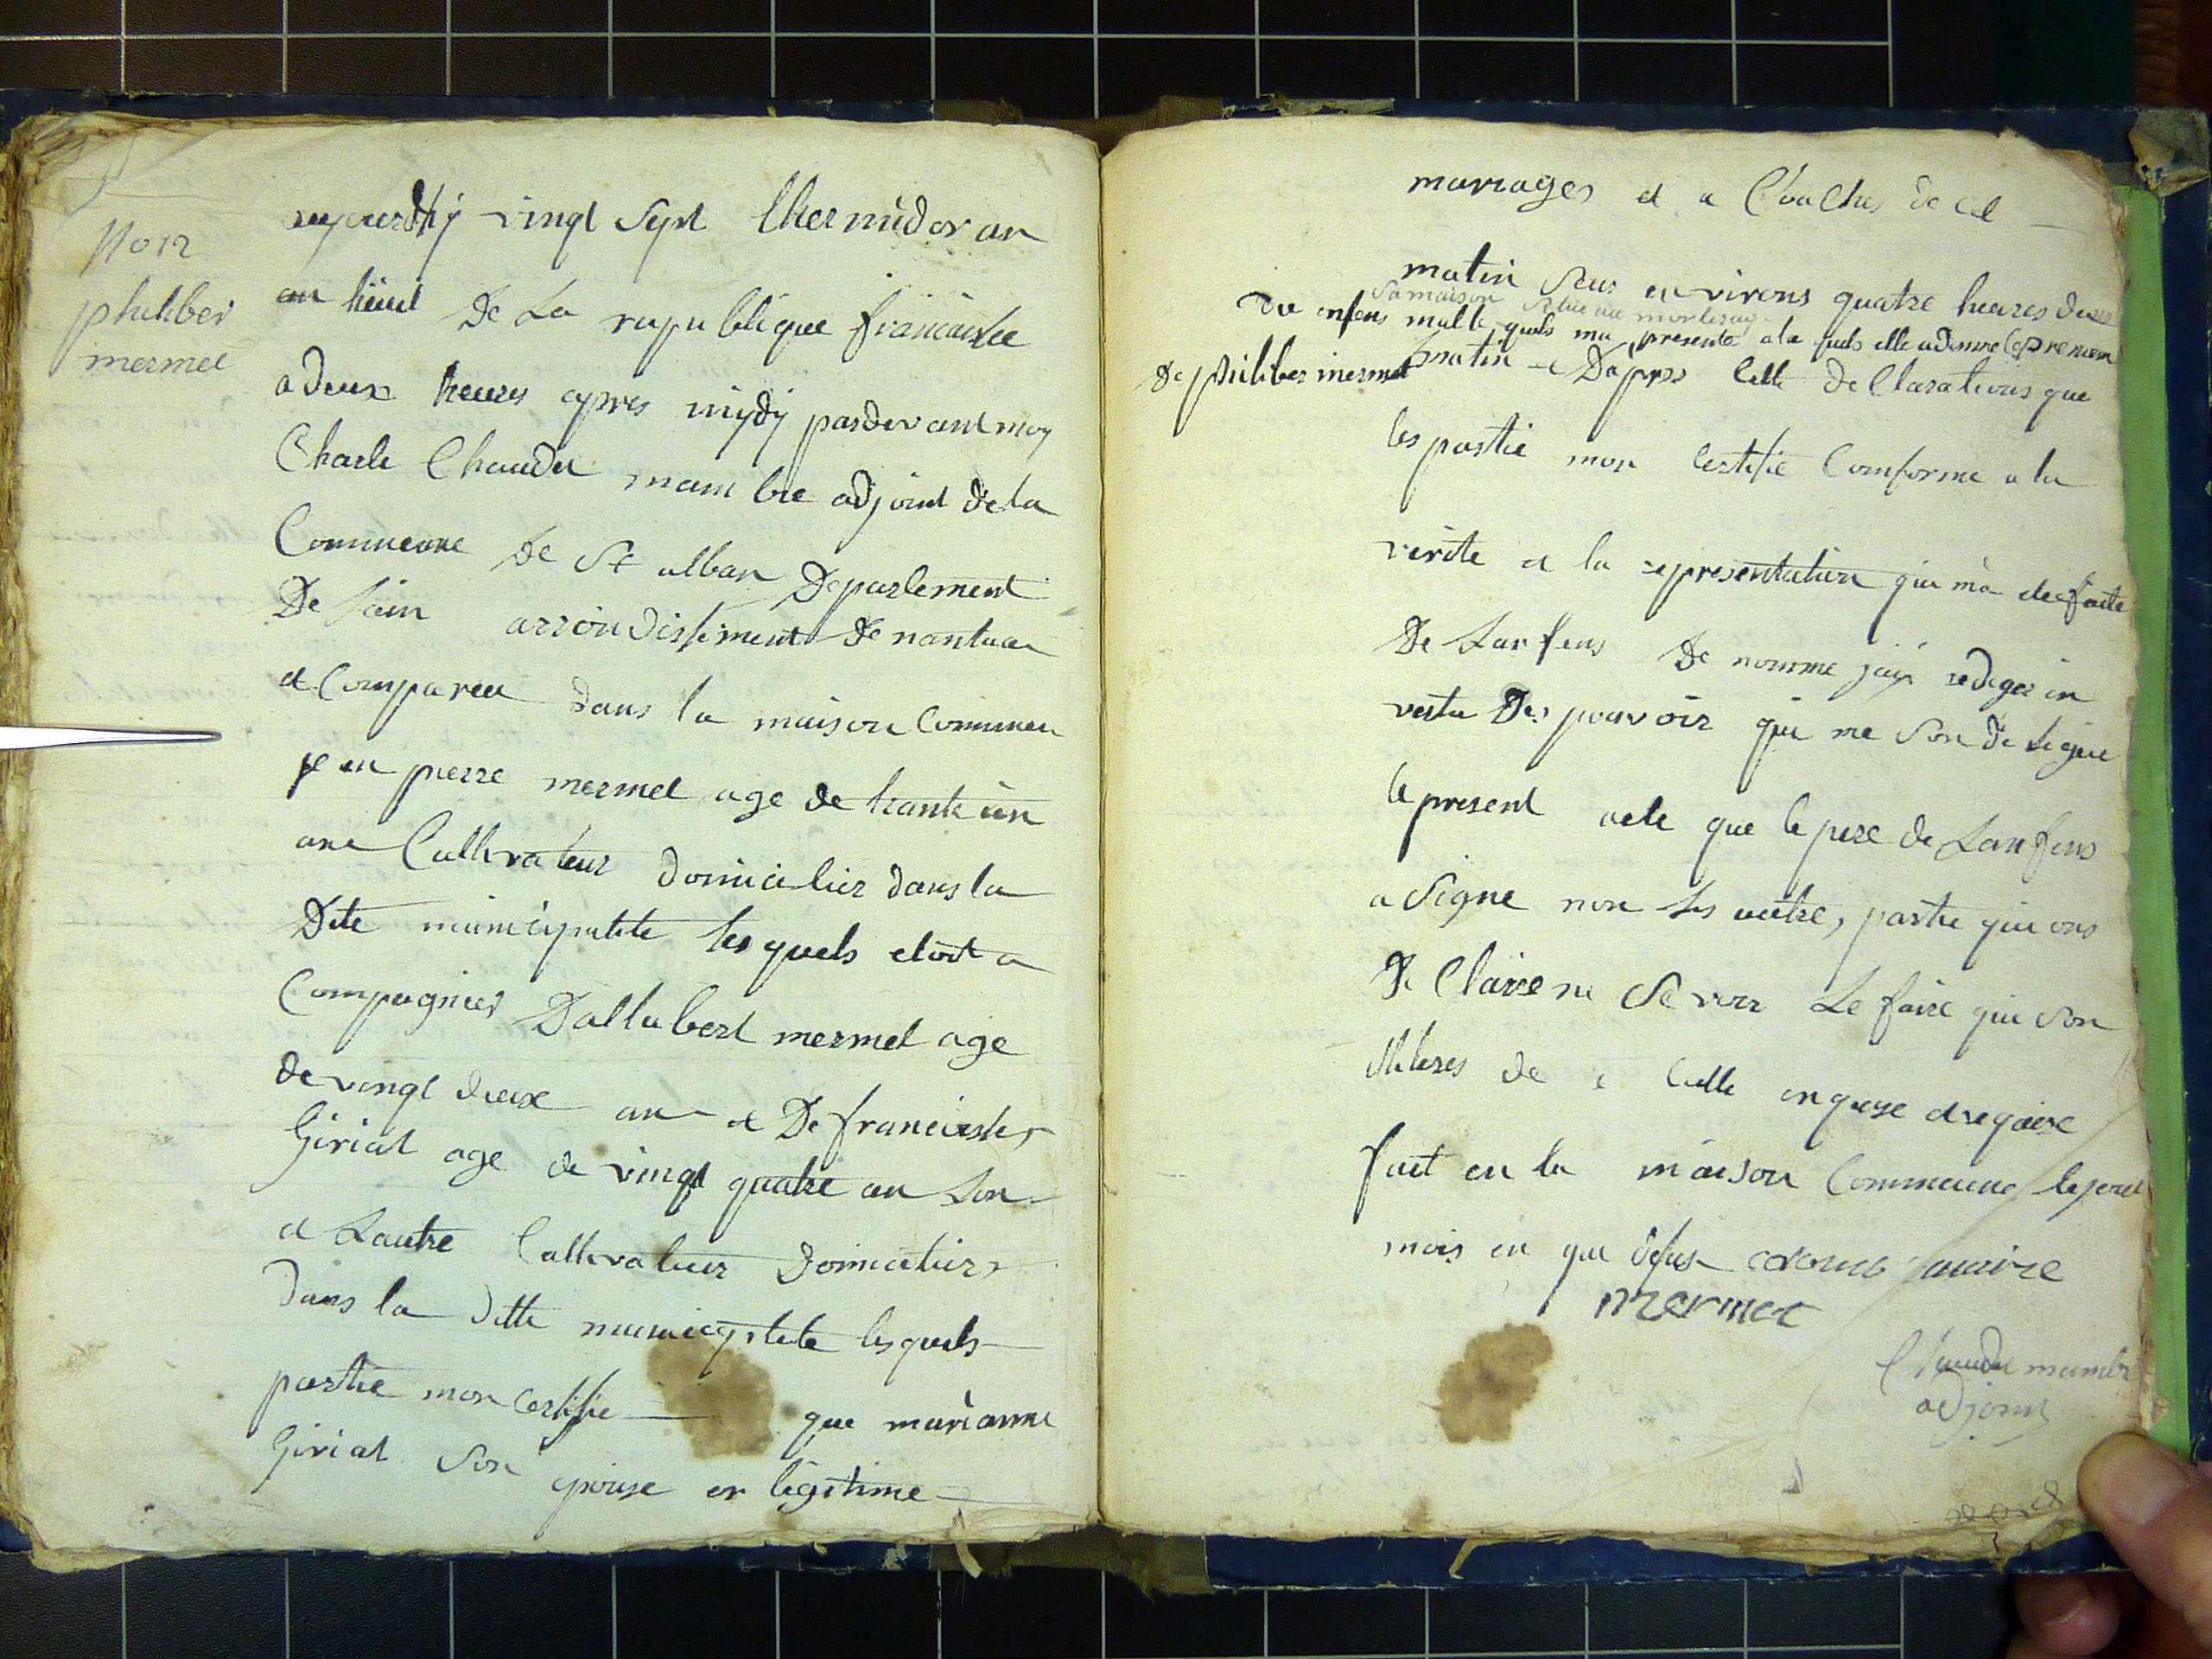 No 12
philiber
mermet
aujourdhÿ vingt Sept thermidor an
an huiut De La republique francaisse
a deux heures apres mÿdÿ pardevant moy
Charle Chaudet mambre adjoint de la
Communne De St alban Departement
De lain arrondissement de nantua
et Compareu dans la maison Commeu
je en pierre mermet age de trante un
ane Cultivateur domicilier dans la
Dite municipalite les quels etoit a
Compagnier Dallubert mermet age
de vingt deux an et De francoisles
Giriat age de vingt quatre an Lon
et Lautre Cultivateur Domicilier
dans la ditte municiplete lesquels
partie mon certifie que marianne
Giriat Son epouse en legitime
mariages et a Couches de cet
matin Seur environs quatre heures deux
Samaison Situe au
Du enfens malle quels ma presente ala quels elle a donne le prenom
De philiber mermet matin et Dapres Cette De Claratione que
les partie mon Certifie Comforme a la
verite et la representation qui ma ete faite
De Lanfens De nomme jaÿ rediger en
vertu Des pouvoir qui me Son De legue
le present acte que le pere de Lanfens
a Signe non les autre, partie qui ons
De Claire ne Savoir Le faire qui Son
illiteres de Celle enquise et reguise
fait en la maison Commeune le jour
mois en que desus maire
mermet
Chaudet mambre
adjoint